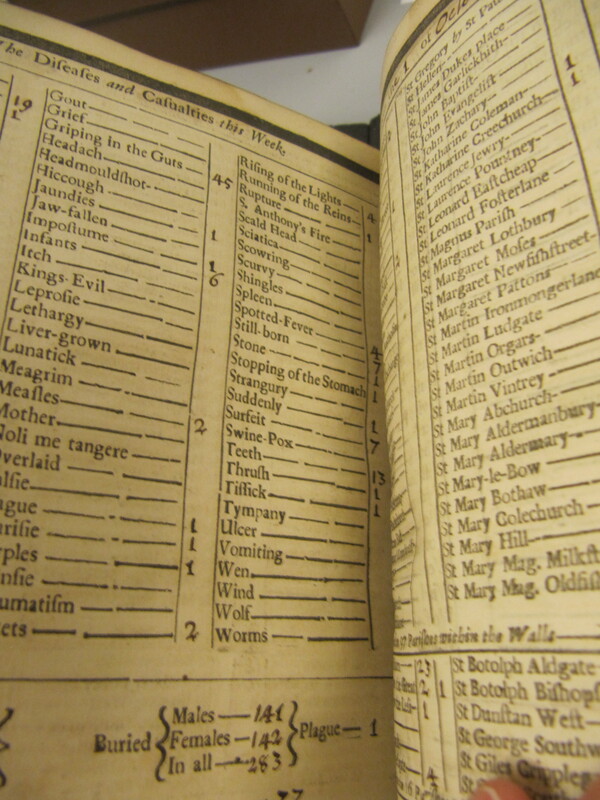 The Diseases and Casualties this Week.
19
1
Gout
Grief
Griping in the Guts 45
Headach
Headmouldshot
Hiccough
Jaundies 1
Jaw-fallen
Impostume 1
Infants 6
Itch
Kings-Evil
Leprosie
Lethargy
Liver-grown
Lunatick
Meagrim
Measles
Mother 2
Noli me tangere
Overlaid
1
1
1
2
Rising of the Lights 4
Running of the Reins
Rupture 1
S. Anthony's Fire
Scald Head
Sciatica
Scowring
Scurvy
Shingles
Spleen
Spotted-Fever
Still-born 4
Stone 7
Stopping of the Stomach 1
Strangury 1
Suddenly
Surfeit 1
Swine-Pox 7
Teeth 13
Thrush 1
Tissick 1
Tympany
Ulcer
Vomiting
Wen
Wind
Wolf
Worms
Buried
Males — 141
Females — 142
In all — 283
Plague — 1
37
of Octo
St Gregory by St Paul
St Hellen
St James Dukes place
St James Garlickhith
St John Baptist
St John Evangelist
St John Zachary
St Katharine Coleman
St Katharine Creechurch
St Laurence Jewry
St Laurence Pountney
St Leonard Eastcheap
St Leonard Fosterlane
St Magnus Parish
St Margaret Lothbury
St Margaret Moses
St Margaret Newfishstreet
St Margaret Pattons
St Martin Ironmongerlane
St Martin Ludgate
St Martin Orgars
St Martin Outwich
St Martin Vintrey
St Mary Abchurch
St Mary Aldermanbury
St Mary Aldermary
St Mary-le-Bow
St Mary Bothaw
St Mary Colechurch
St Mary Hill
St Mary Mag. Milkst
St Mary Mag. Oldfish
1
1
97 Parishes within the Walls
23
2 1
1
4
St Botolph Aldgate
St Botolph Bishops
St Dunstan West
St George Southw
St Giles Cripplega